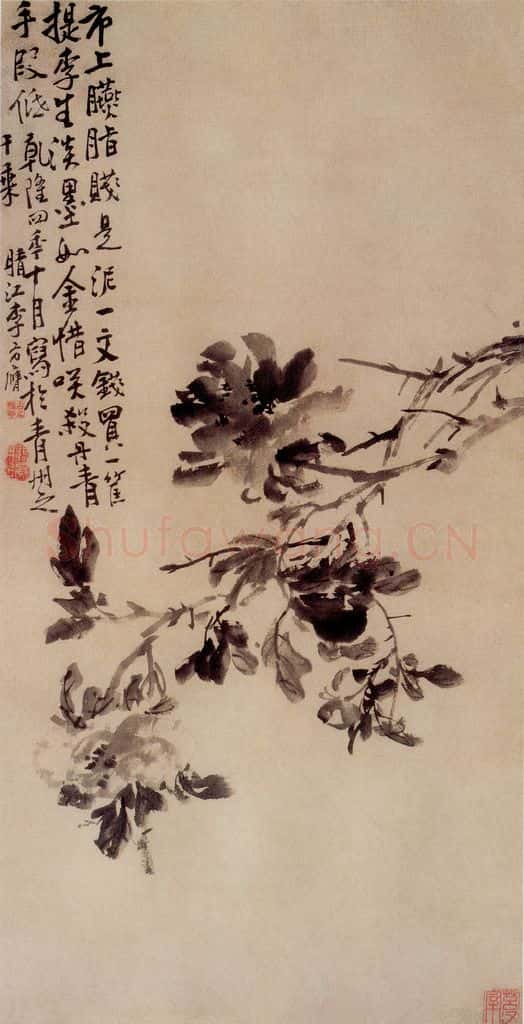 市上臙脂賤是泥一文錢買一筐
提李生淡墨如金惜咲殺丹青
手段低乾隆四年十月寫於青州之
千乘
晴江李方膺
Shufawang.CN